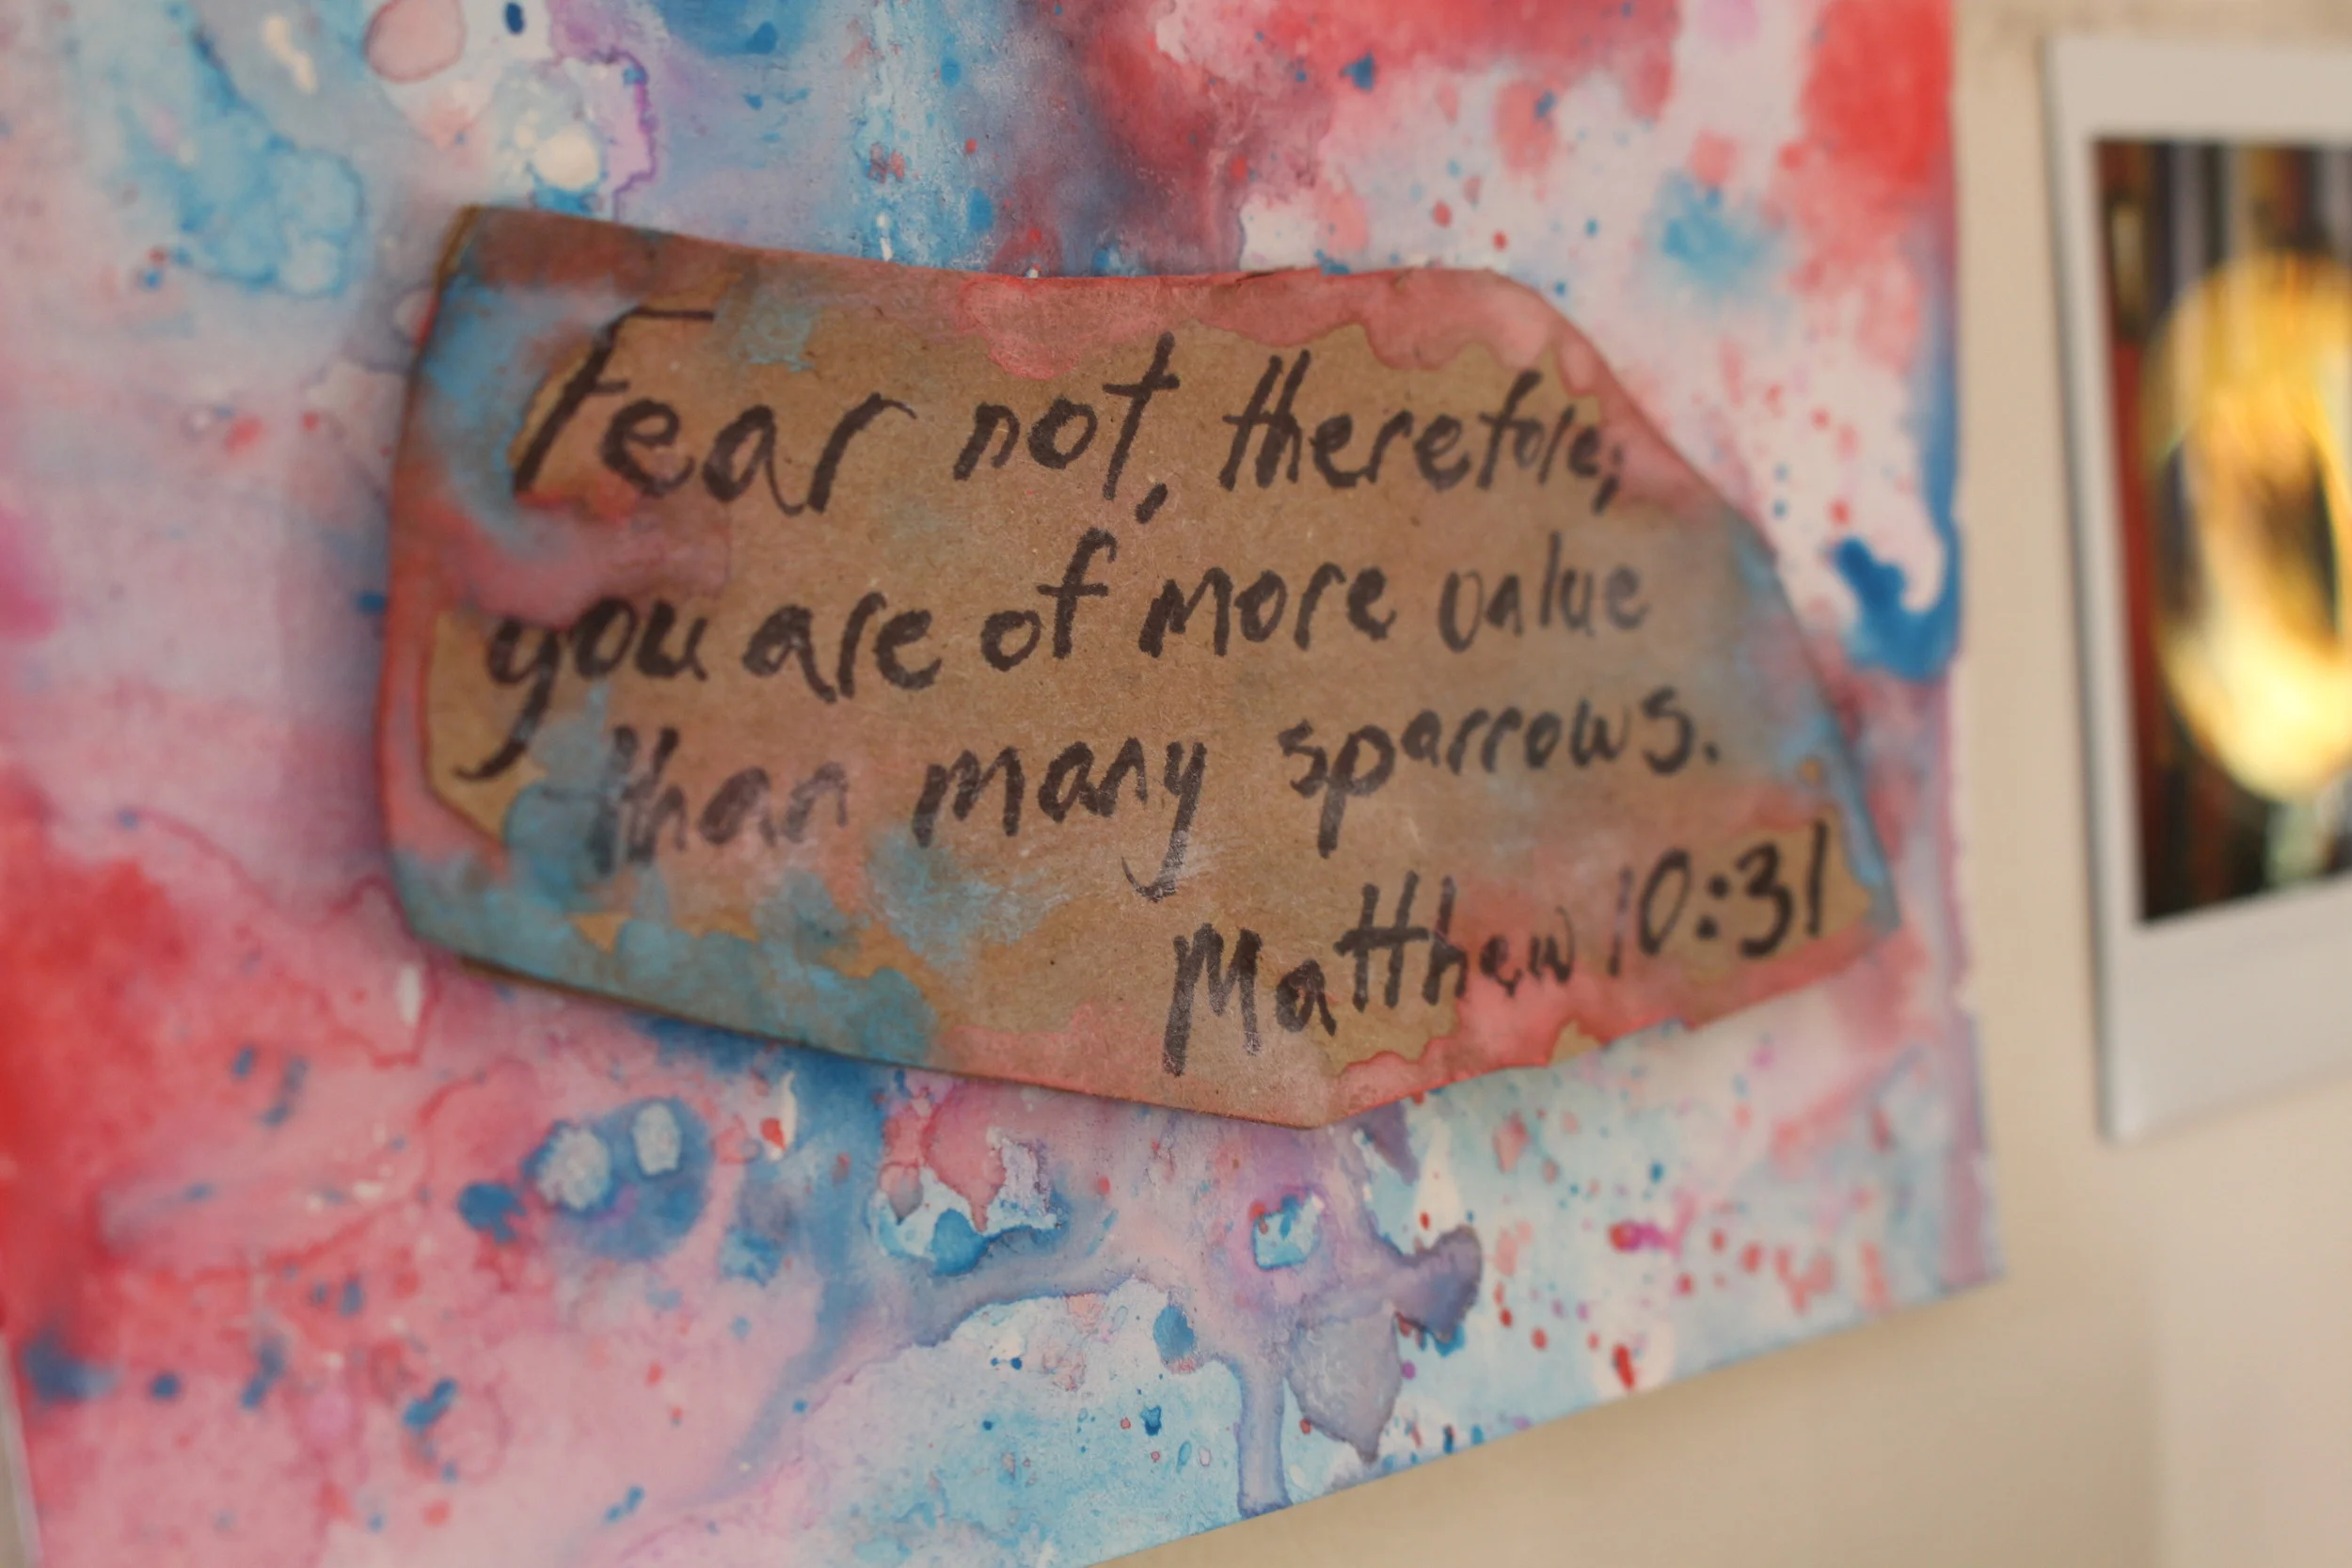 Fear not, therefore;
you are of more value
than many sparrows.
Matthew 10:31